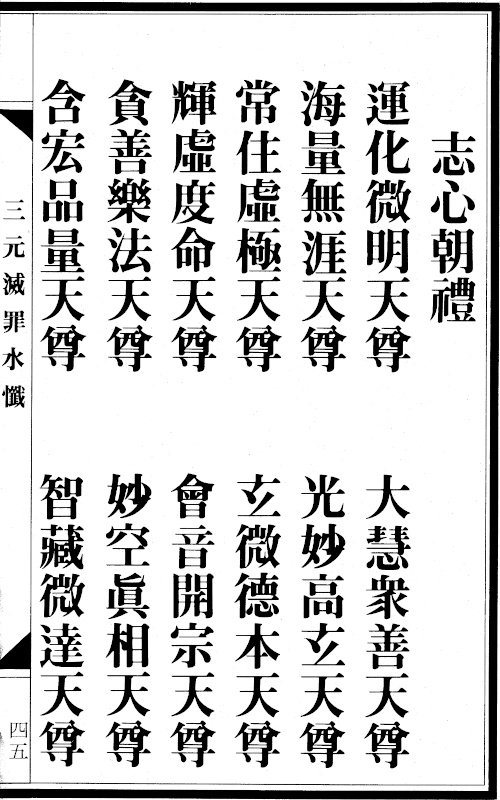 志心朝禮
運化微明天尊　大慧衆善天尊
海量無涯天尊　光妙高玄天尊
常住虛極天尊　玄微德本天尊
輝虛度命天尊　會音開宗天尊
貪善樂法天尊　妙空眞相天尊
含宏品量天尊　智藏微達天尊
三元滅罪水懺
四五